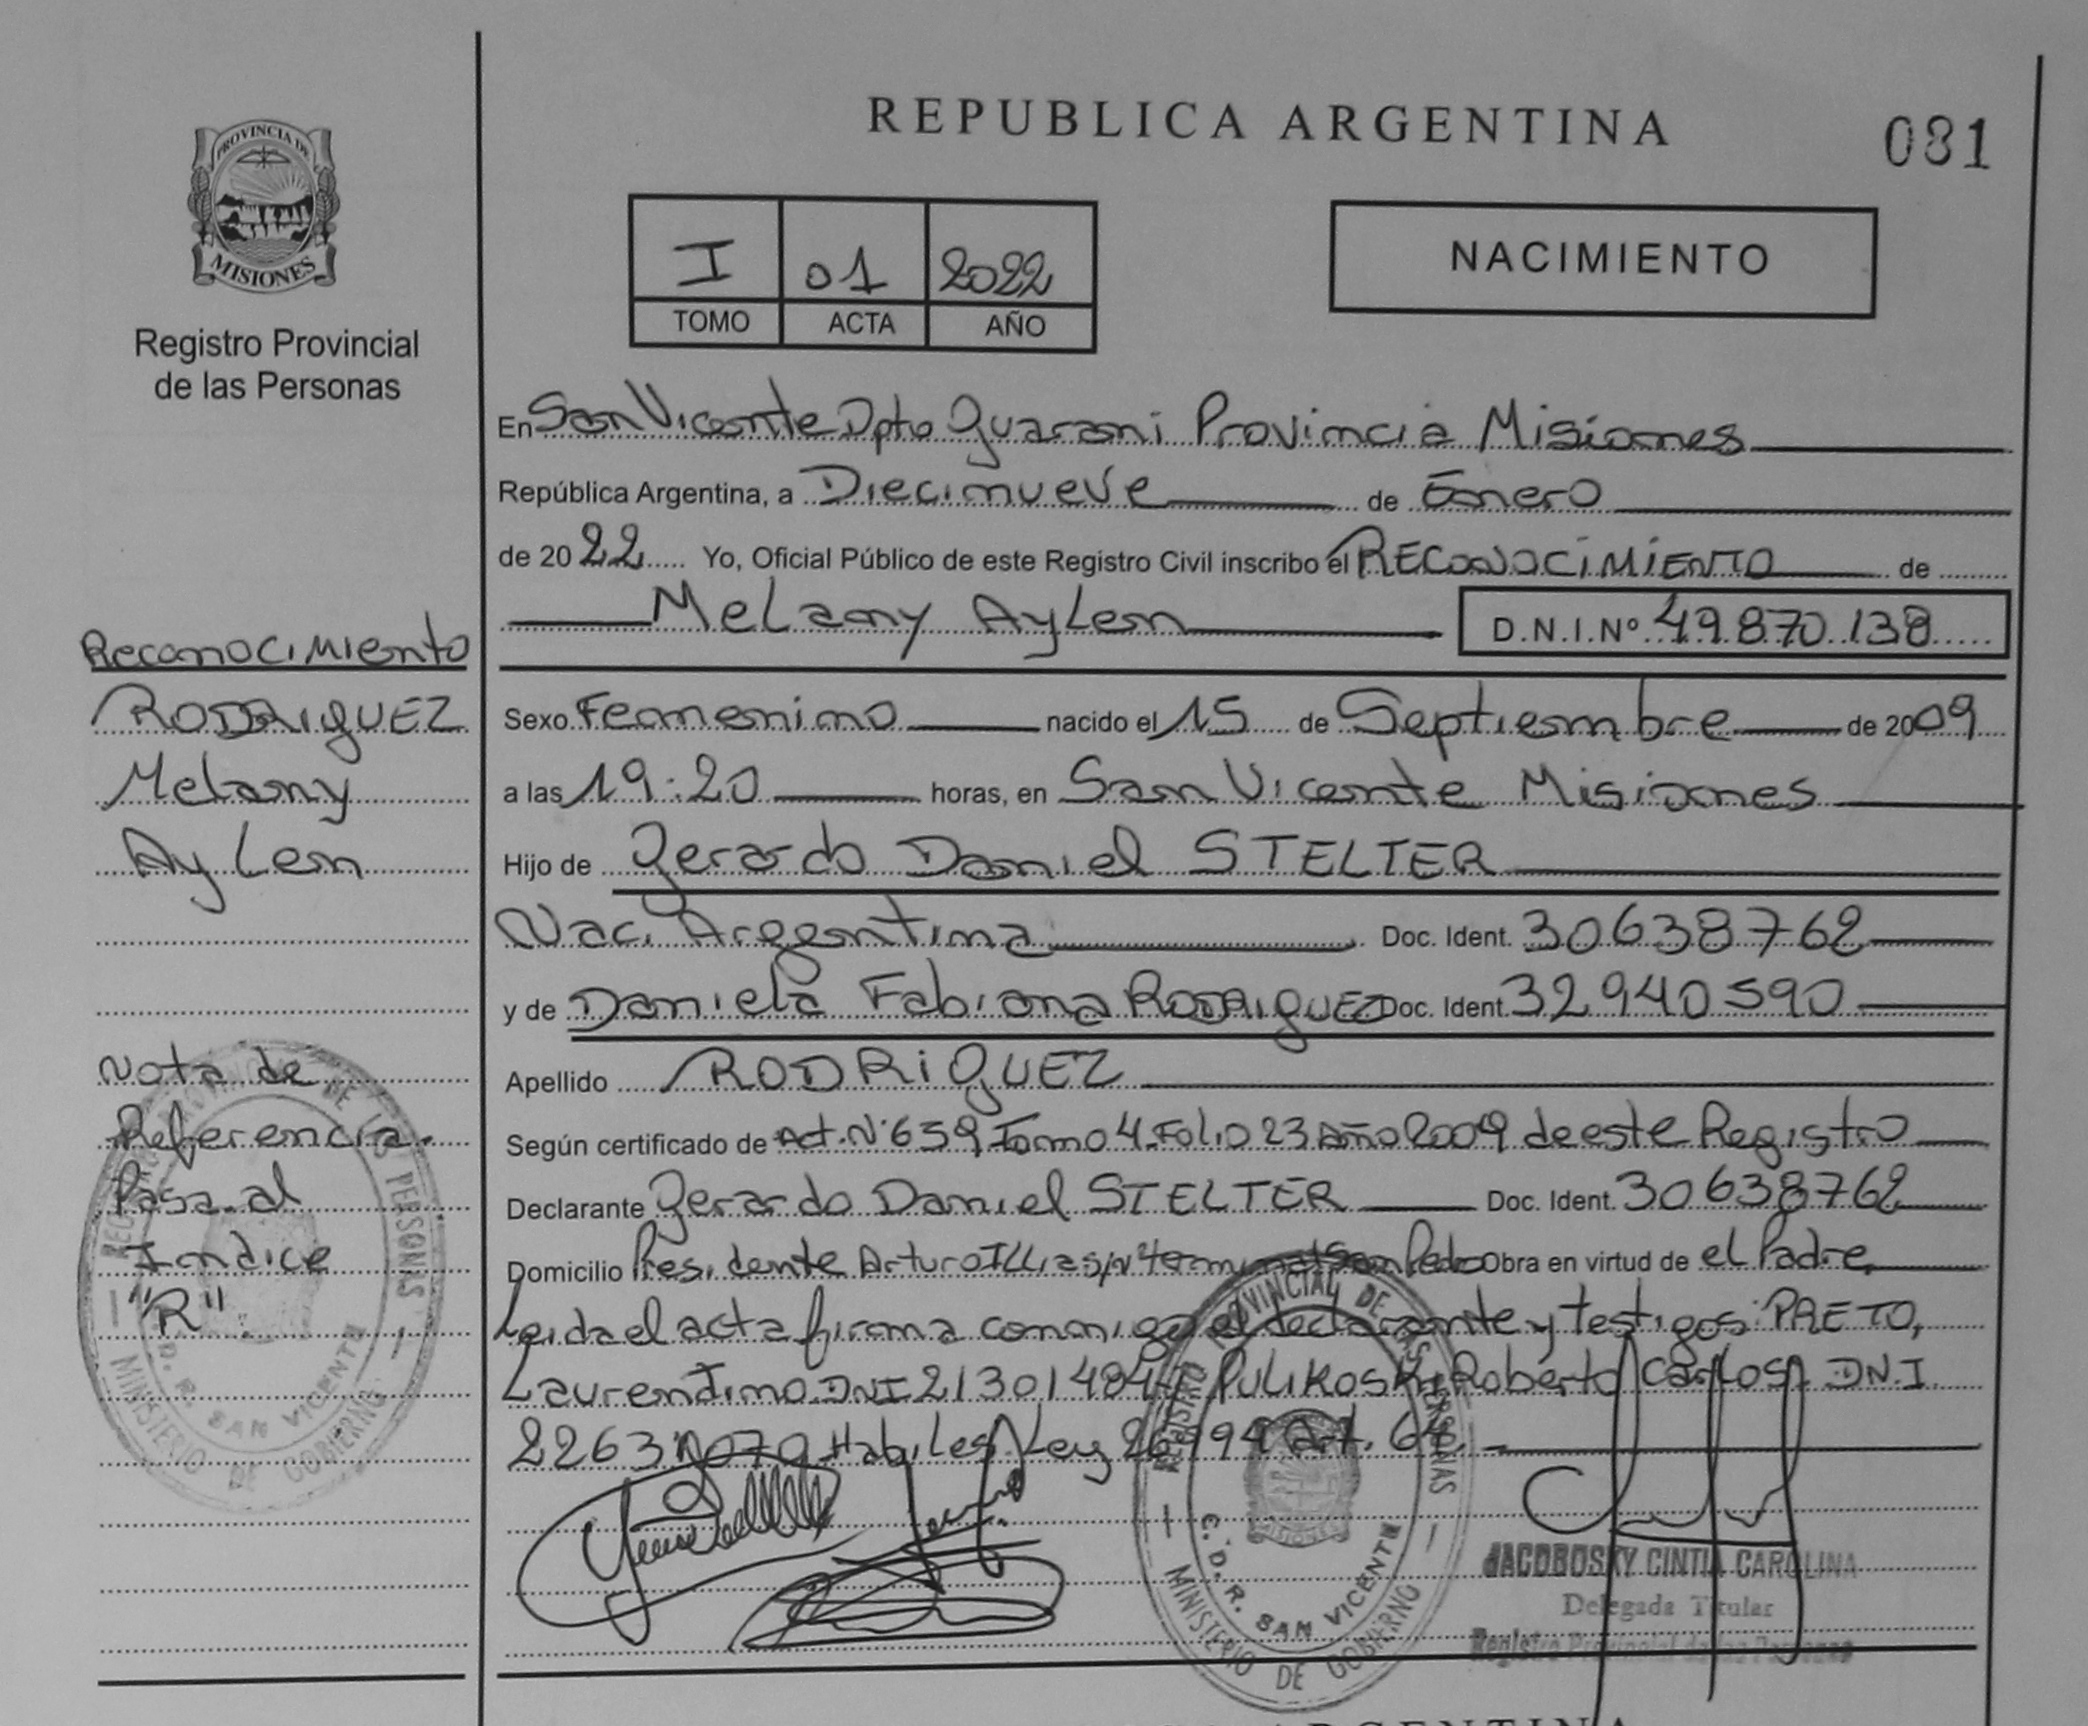 REPUBLICA ARGENTINA
081
PROVINCIA DE
MISIONES
Registro Provincial
de las Personas
I 01 2022
TOMO ACTA AÑO
NACIMIENTO
En San Vicente Dpto Guarani Provincia Misiones
República Argentina, a Diecinueve de Enero
de 2022 Yo, Oficial Público de este Registro Civil inscribo el RECONOCIMIENTO de
Melany Aylen D.N.I.Nº 49.870.138
Reconocimiento
RODRIGUEZ
Melany
Aylen
Sexo Femenino nacido el 15 de Septiembre de 2009
a las 19:20 horas, en San Vicente Misiones
Hijo de Gerardo Daniel STELTER
Nac. Argentina Doc. Ident. 30638762
y de Daniela Fabiana RODRIGUEZ Doc. Ident. 32940590
Apellido RODRIGUEZ
Según certificado de Act. Nº 659 Tomo 4 Folio 23 Año 2009 de este Registro
Declarante Gerardo Daniel STELTER Doc. Ident. 30638762
Domicilio Presidente Arturo Illia s/n San Pedro Obra en virtud de el Padre.
Leida el acta firma conmigo el declarante y testigos: PRETO,
Laurentino DNI PULIKOSKI Roberto Carlos DNI
Habiles Ley 26994 Art. 64.
Nota de
Referencia.
Pasa al
Indice
"R"
REGISTRO PROVINCIAL DE LAS PERSONAS
C.D.R. SAN VICENTE
MINISTERIO DE GOBIERNO
REGISTRO PROVINCIAL DE LAS PERSONAS
MISIONES
C.D.R. SAN VICENTE
MINISTERIO DE GOBIERNO
JACOBOSKY CINTIA CAROLINA
Delegada Titular
Registro Provincial de las Personas